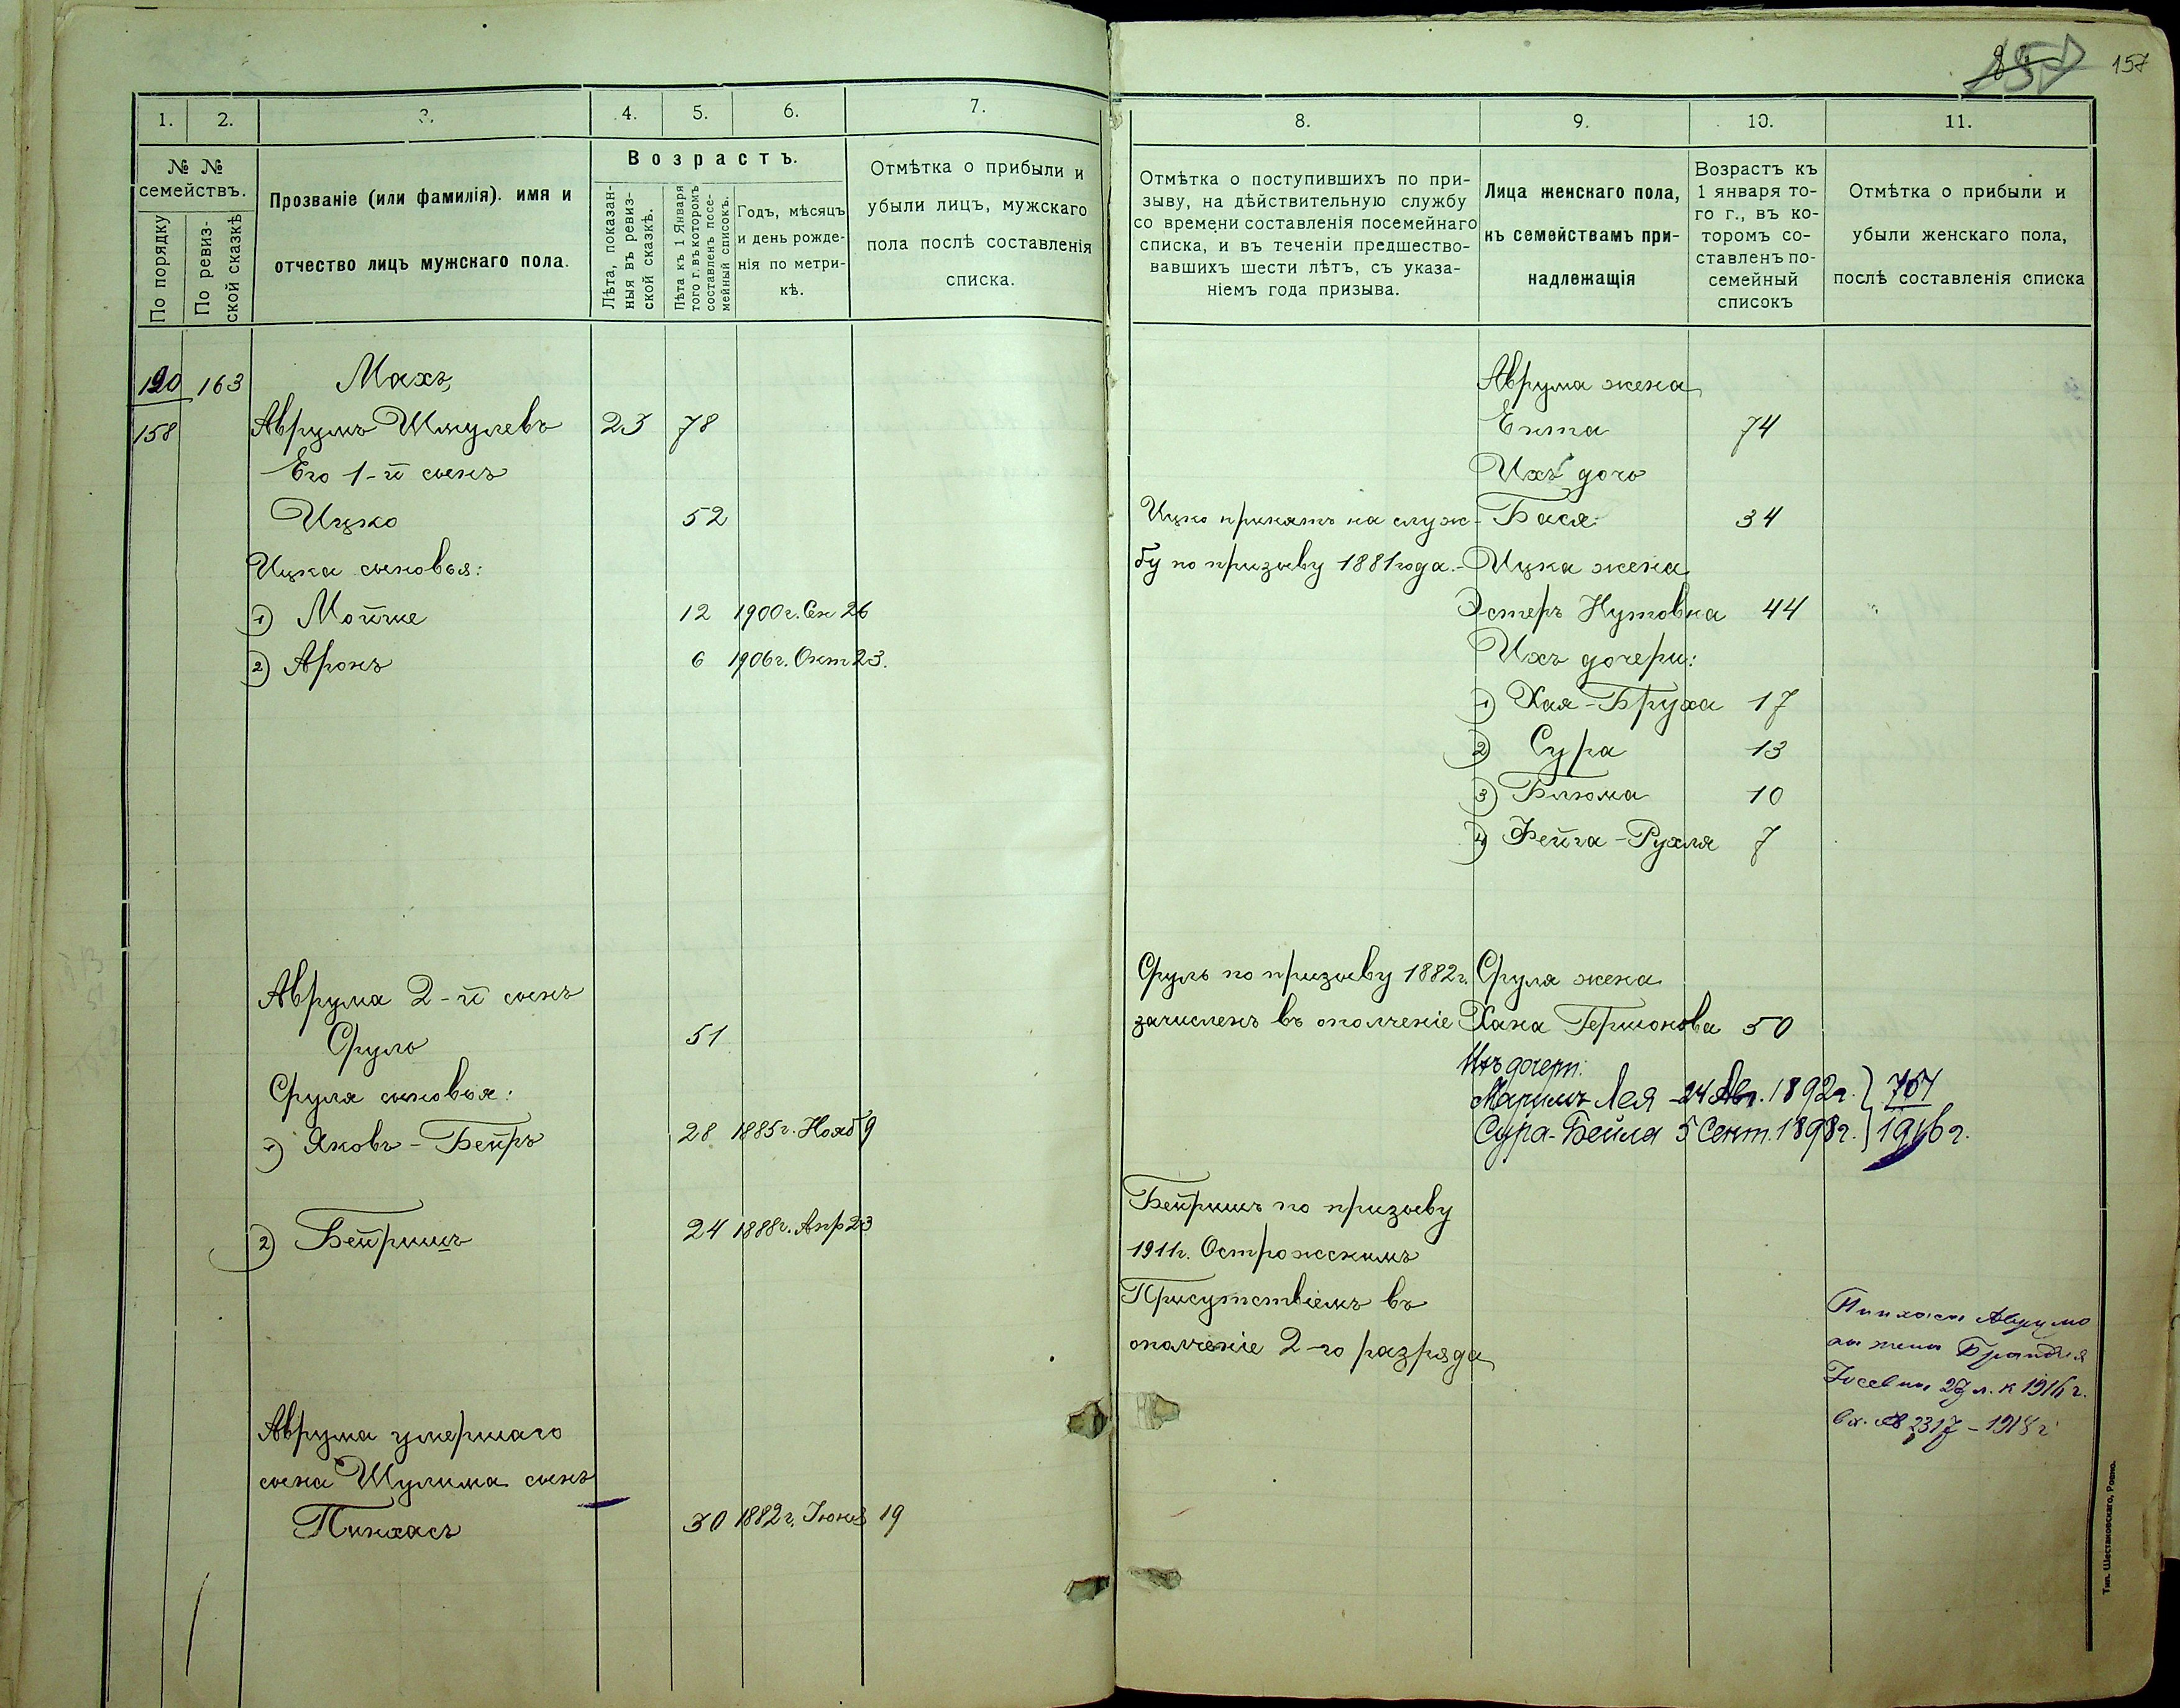 157
1.
2.
3.
4.
5.
6.
7.
№ №
семействъ.
По порядку
По ревиз-
ской сказкѣ
Прозваніе (или фамилія). имя и
отчество лицъ мужскаго пола.
Возрастъ.
Лѣта, показан-
ныя въ ревиз-
ской сказкѣ.
Лѣта къ 1 Января
того г. въ которомъ
составленъ посе-
мейный списокъ.
Годъ, мѣсяцъ
и день рожде-
нія по метри-
кѣ.
Отмѣтка о прибыли и
убыли лицъ, мужскаго
пола послѣ составленія
списка.
120 163 Махъ
158 Аврумъ Шмулевъ 23 78
Его 1-й сынъ
Ицко 52
Ицка сыновья:
1) Мойше 12 1900г. Сен 26
2) Аронъ 6 1906г. Окт 23.
Аврума 2-й сынъ
Сруль 51
Сруля сыновья:
1) Яковъ-Бейръ 28 1885г. Нояб 9
2) Бейришъ 24 1888г. Апр 23
Аврума умершаго
сына Шулима сынъ
Пинхасъ 30 1882г. Іюня 19
8.
9.
10.
11.
Отмѣтка о поступившихъ по при-
зыву, на дѣйствительную службу
со времени составленія посемейнаго
списка, и въ теченіи предшество-
вавшихъ шести лѣтъ, съ указа-
ніемъ года призыва.
Лица женскаго пола,
къ семействамъ при-
надлежащія
Возрастъ къ
1 января то-
го г., въ ко-
торомъ со-
ставленъ по-
семейный
списокъ
Отмѣтка о прибыли и
убыли женскаго пола,
послѣ составленія списка
Аврума жена
Ента 74
Ихъ дочь
Ицко принятъ на служ- Бася 34
бу по призыву 1881 года. Ицка жена
Эстеръ Нутовна 44
Ихъ дочери:
1) Хая-Бруха 17
2) Сура 13
3) Блюма 10
4) Фейга-Рухля 7
Сруль по призыву 1882г. Сруля жена
зачисленъ въ ополченіе Хана Гершонова 50
Ихъ дочери:
Маримъ Лея 24 Авг. 1892г.
Сура-Бейла 5 Сент. 1898г. 1916г.
Бейришъ по призыву
1911г. Острожскимъ
Присутствіемъ въ
ополченіе 2-го разряда
Пинхаса Аврумо
жена Брандля
к 1916 г.
вх. № 2317-1918г
Тип. Шестаковскаго, Ровно.